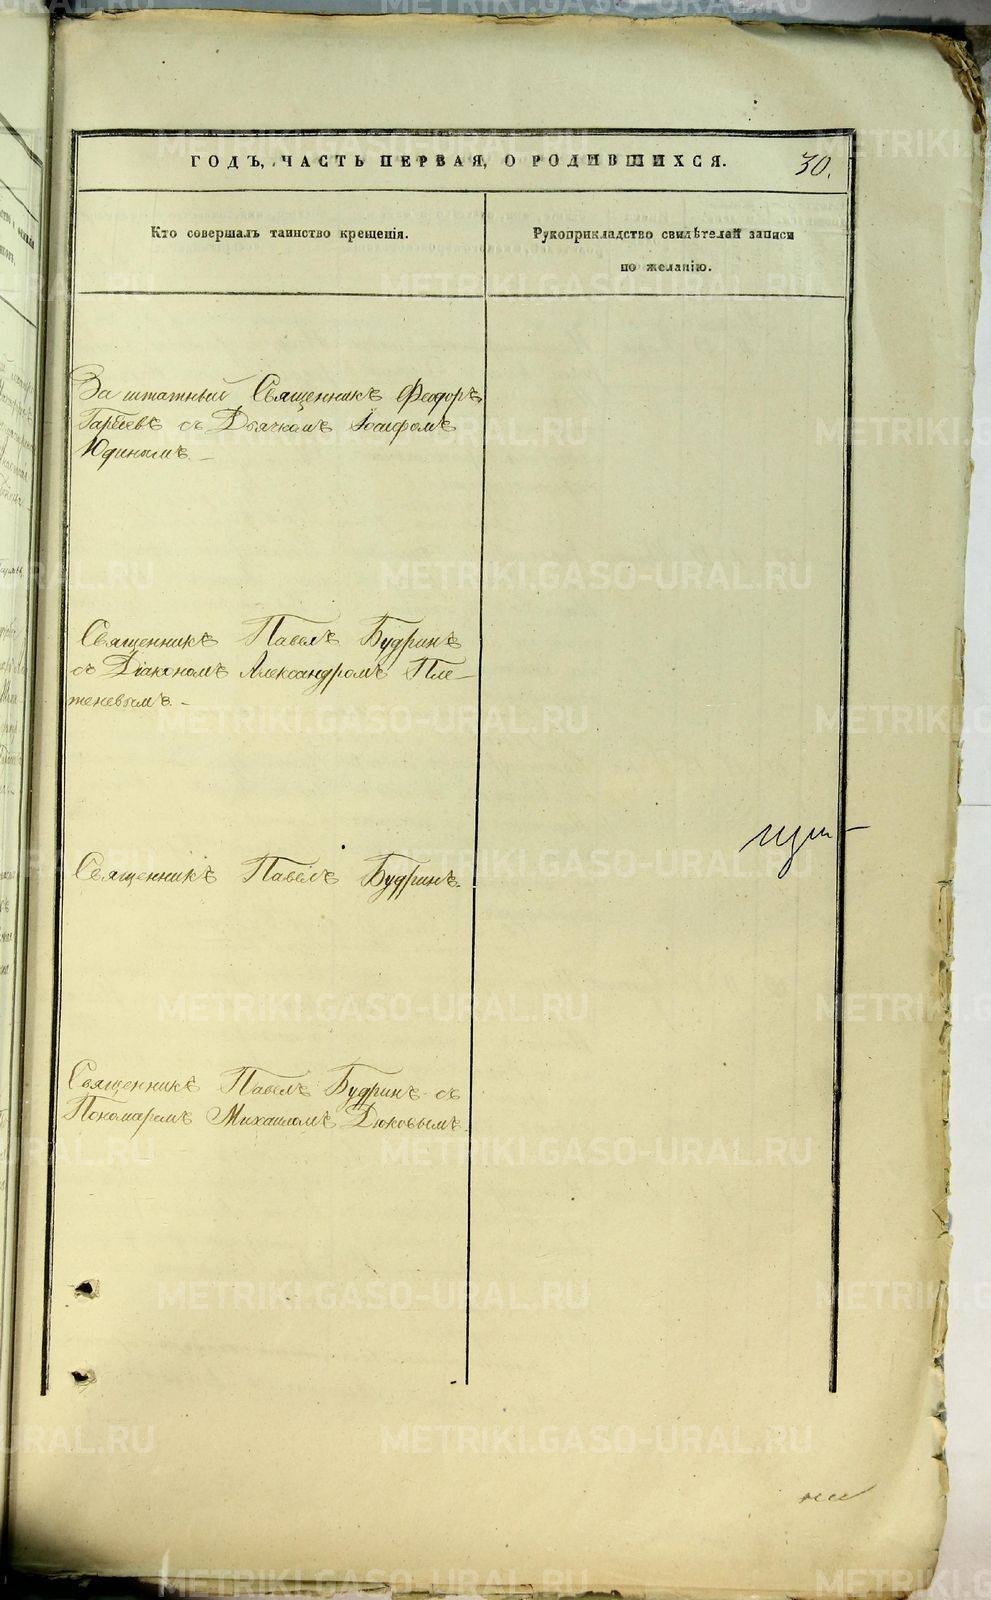 ГОДЪ, ЧАСТЬ ПЕРВАЯ, О РОДИВШИХСЯ. 30.
Кто совершалъ таинство крещенія.
Рукоприкладство свидѣтелей записи
по желанію.
Заштатный Священникъ Феодоръ
съ Дьячкомъ Іосифомъ
Юдинымъ. -
Священникъ Павелъ Будринъ
съ Діакономъ Александромъ Пле-
теневымъ. -
Священникъ Павелъ Будринъ.
Священникъ Павелъ Будринъ съ
Пономаремъ Михаиломъ Дюковымъ.
METRIKI.GASO-URAL.RU